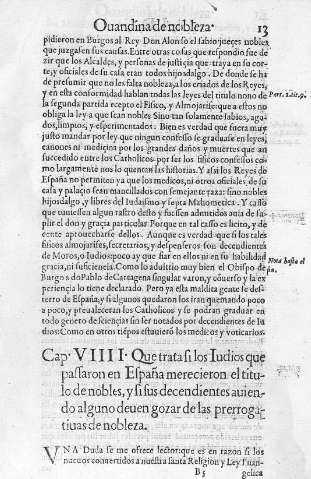 Ouandina de nobleza. 13
pidieron en Burgos al Rey Don Alonso el sabio jueces nobles
que juzgasen sus causas. Entre otras cosas que respondio fue de
zir que los Alcaldes, y personas de justicia que traya en su cor-
te, y oficiales de su casa eran todos hijosdalgo. De donde se ha
de presumir que no les falta nobleza, a los criados de los Reyes,
y en esta conformidad hablan todas las leyes del titulo nono de
la segunda partida ecepto el Fisico, y Almojarife que a estos no
obliga la ley a que sean nobles Sino tan solamente sabios, agu-
dos, limpios, y esperimentados. Bien es verdad que fuera muy
justo mandar por ley que ningun confesso se graduase en leyes,
canones ni medicina por los grandes daños y muertes que an
succedido entre los Catholicos por ser los fisicos confessos co
mo largamente nos lo quentan las historias. Y asi los Reyes de
España no permiten ya que los medicos, ni otros oficiales de su
casa y palacio sean manzillados con semejante raza: sino nobles
hijosdalgo, y libres del Iudaismo y septa Mahometica. Y casso
que tuuiessen algun rastro desto y fuessen admitidos auia de su-
plir el don y gracia particular Porque en tal casso es licito, y de-
cente aprouecharse dellos. Aunque es verdad que si los tales
fisicos almojarifes, secretarios, y despenseros son decendientes
de Moros, o Iudios: poco ay que fiar en ellos ni en su habilidad
gracia, ni suficiencia. Como lo aduirtio muy bien el Obispo de
Burgos do Pablo de Cartagena singular varon, y couerso y la ex
periencia lo tiene declarado. Pero ya esta maldita gente se des-
tierro de España, y si algunos quedaron los iran quemando poco
a poco, y preualeceran los Catholicos y se podran graduar en
todo genero de sciencias sin ser notados por decendientes de Iu
dios: Como en otros tiepos estuuieró los medicos y voticarios.
Part. 2. tit. 9.
Nota hasta el
fin.
Cap. VIIII. Que trata si los Iudios que
passaron en España merecieron el titu-
lo de nobles, y si sus decendientes auien-
do alguno deuen gozar de las prerroga-
tiuas de nobleza.
VNA Duda se me ofrece lector: que es en razon si los
nueuos conuertidos a nuestra Santa Religion y Ley Euan-
B 5 gelica